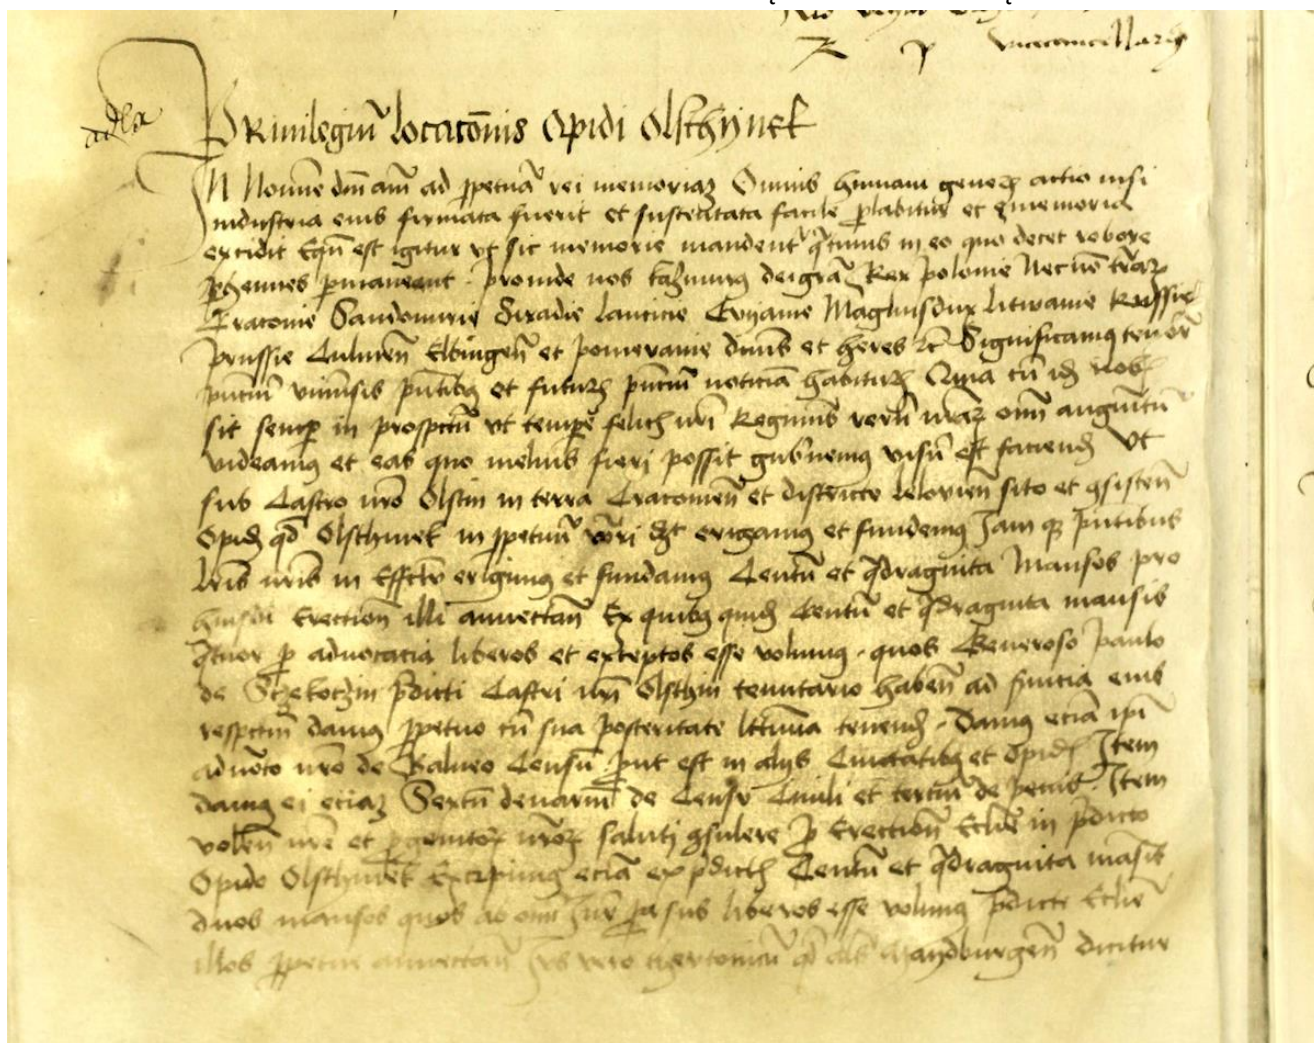 R P vicecancellarii
Privilegiũ locacõnis Opidi Olschijnek
IN Nomine dm̃ am̃ ad ppetuã rei memoriaz Omnis humani genes actio nisi
industria eius firmata fuerit et suscitata facile plabitur et ememoria
excidit Equũ est igitur vt sic memorie mandent qtinus in eo quo decet robore
phennes pmaneant proinde nos kazimirus deigrã Rex polonie Necnõ trãz
Cracovie Sandomirie Siradie lancicie Cuyavie Magnusdux litwanie Russie
prussie Culmeñ Elbingeñ et pomeranie dñus et heres Significamus tenor
pñciũ vniusis pñtibus et futuris pñciũ noticiã habitur Quia cũ id nob
sit semp in prospectũ vt tempe felic nri Regiminis rerũ nrãz om̃ augmẽtũ
videamus et eas quo melius fieri possit gubnemus visũ est faciend vt
sub Castro nro Olstin in terra Cracovieñ et districto leloviẽn sito et gsisteñ
Opid qd Olschinek in ppetuũ vocari erigamus et fundemus Jam qz pñtibus
lris nris in Effectũ erigimus et fundamus Centũ et qdraginta Mansos pro
huiusmi Erectioñ illi annectañ Ex quibus quid Centũ et qdraginta mansis
qtuor p advocacia liberos et exceptos esse volumus quos Generoso paulo
de Sczekoczin pdicti Castri nri Olsthin tenutario habeñ ad suicia eius
respectũ damus ppetuo cũ sua posteritate ltima tenend Damus eciã ipi
advõto nro de Balneo Censũ put est in alijs Civitatibus et Opid Item
damus ei eciaz Sextũ denariũ de Censu Civili et terciũ de penis Item
voleñ nre et pgenitoz nrõz saluti gsulere p Erectioñ Ecclie in pdicto
Opido Olschinek Excipimus eciã ex pdictis Centũ et qdraginta mãsis
duos mansos quos ab omi Jure liberos esse volumus pdicte Ecclie
illos ppetue annectañ Jus vero thewtonicũ qd als Maydburgeñ dicitur